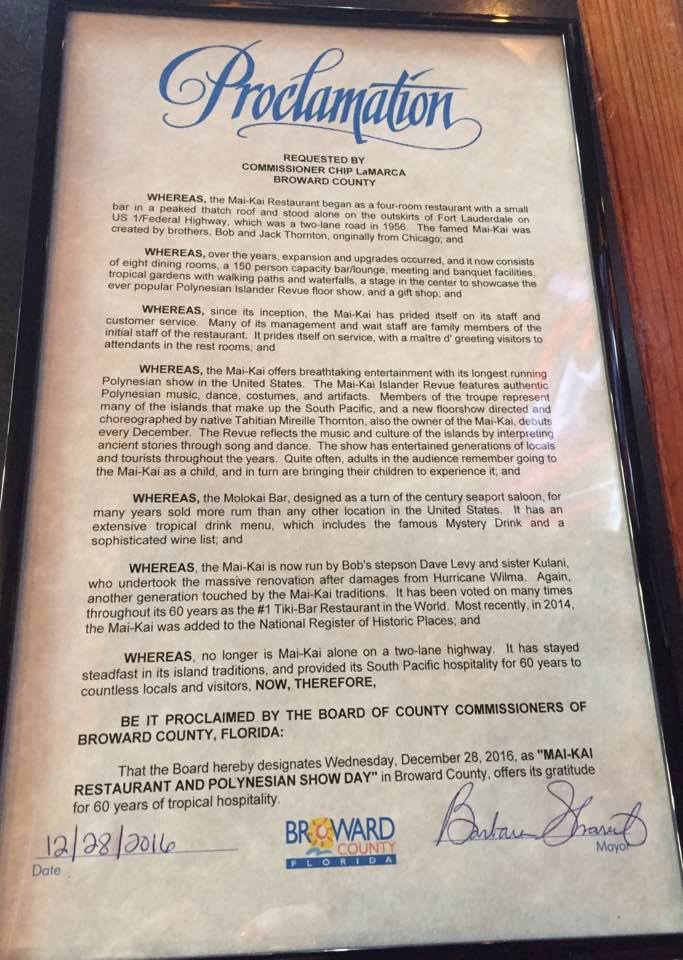 Proclamation
REQUESTED BY
COMMISSIONER CHIP LaMARCA
BROWARD COUNTY
WHEREAS, the Mai-Kai Restaurant began as a four-room restaurant with a small
bar in a peaked thatch roof and stood alone on the outskirts of Fort Lauderdale on
US 1/Federal Highway, which was a two-lane road in 1956. The famed Mai-Kai was
created by brothers, Bob and Jack Thornton, originally from Chicago; and
WHEREAS, over the years, expansion and upgrades occurred, and it now consists
of eight dining rooms, a 150 person capacity bar/lounge, meeting and banquet facilities,
tropical gardens with walking paths and waterfalls, a stage in the center to showcase the
ever popular Polynesian Islander Revue floor show, and a gift shop; and
WHEREAS, since its inception, the Mai-Kai has prided itself on its staff and
customer service. Many of its management and wait staff are family members of the
initial staff of the restaurant. It prides itself on service, with a maître d' greeting visitors to
attendants in the rest rooms; and
WHEREAS, the Mai-Kai offers breathtaking entertainment with its longest running
Polynesian show in the United States. The Mai-Kai Islander Revue features authentic
Polynesian music, dance, costumes, and artifacts. Members of the troupe represent
many of the islands that make up the South Pacific, and a new floorshow directed and
choreographed by native Tahitian Mireille Thornton, also the owner of the Mai-Kai, debuts
every December. The Revue reflects the music and culture of the islands by interpreting
ancient stories through song and dance. The show has entertained generations of locals
and tourists throughout the years. Quite often, adults in the audience remember going to
the Mai-Kai as a child, and in turn are bringing their children to experience it; and
WHEREAS, the Molokai Bar, designed as a turn of the century seaport saloon, for
many years sold more rum than any other location in the United States. It has an
extensive tropical drink menu, which includes the famous Mystery Drink and a
sophisticated wine list; and
WHEREAS, the Mai-Kai is now run by Bob's stepson Dave Levy and sister Kulani,
who undertook the massive renovation after damages from Hurricane Wilma. Again,
another generation touched by the Mai-Kai traditions. It has been voted on many times
throughout its 60 years as the #1 Tiki-Bar Restaurant in the World. Most recently, in 2014,
the Mai-Kai was added to the National Register of Historic Places; and
WHEREAS, no longer is Mai-Kai alone on a two-lane highway. It has stayed
steadfast in its island traditions, and provided its South Pacific hospitality for 60 years to
countless locals and visitors, NOW, THEREFORE,
BE IT PROCLAIMED BY THE BOARD OF COUNTY COMMISSIONERS OF
BROWARD COUNTY, FLORIDA:
That the Board hereby designates Wednesday, December 28, 2016, as "MAI-KAI
RESTAURANT AND POLYNESIAN SHOW DAY" in Broward County, offers its gratitude
for 60 years of tropical hospitality.
12/28/2016
Date
BROWARD
COUNTY
FLORIDA
Barbara Sharief
Mayor